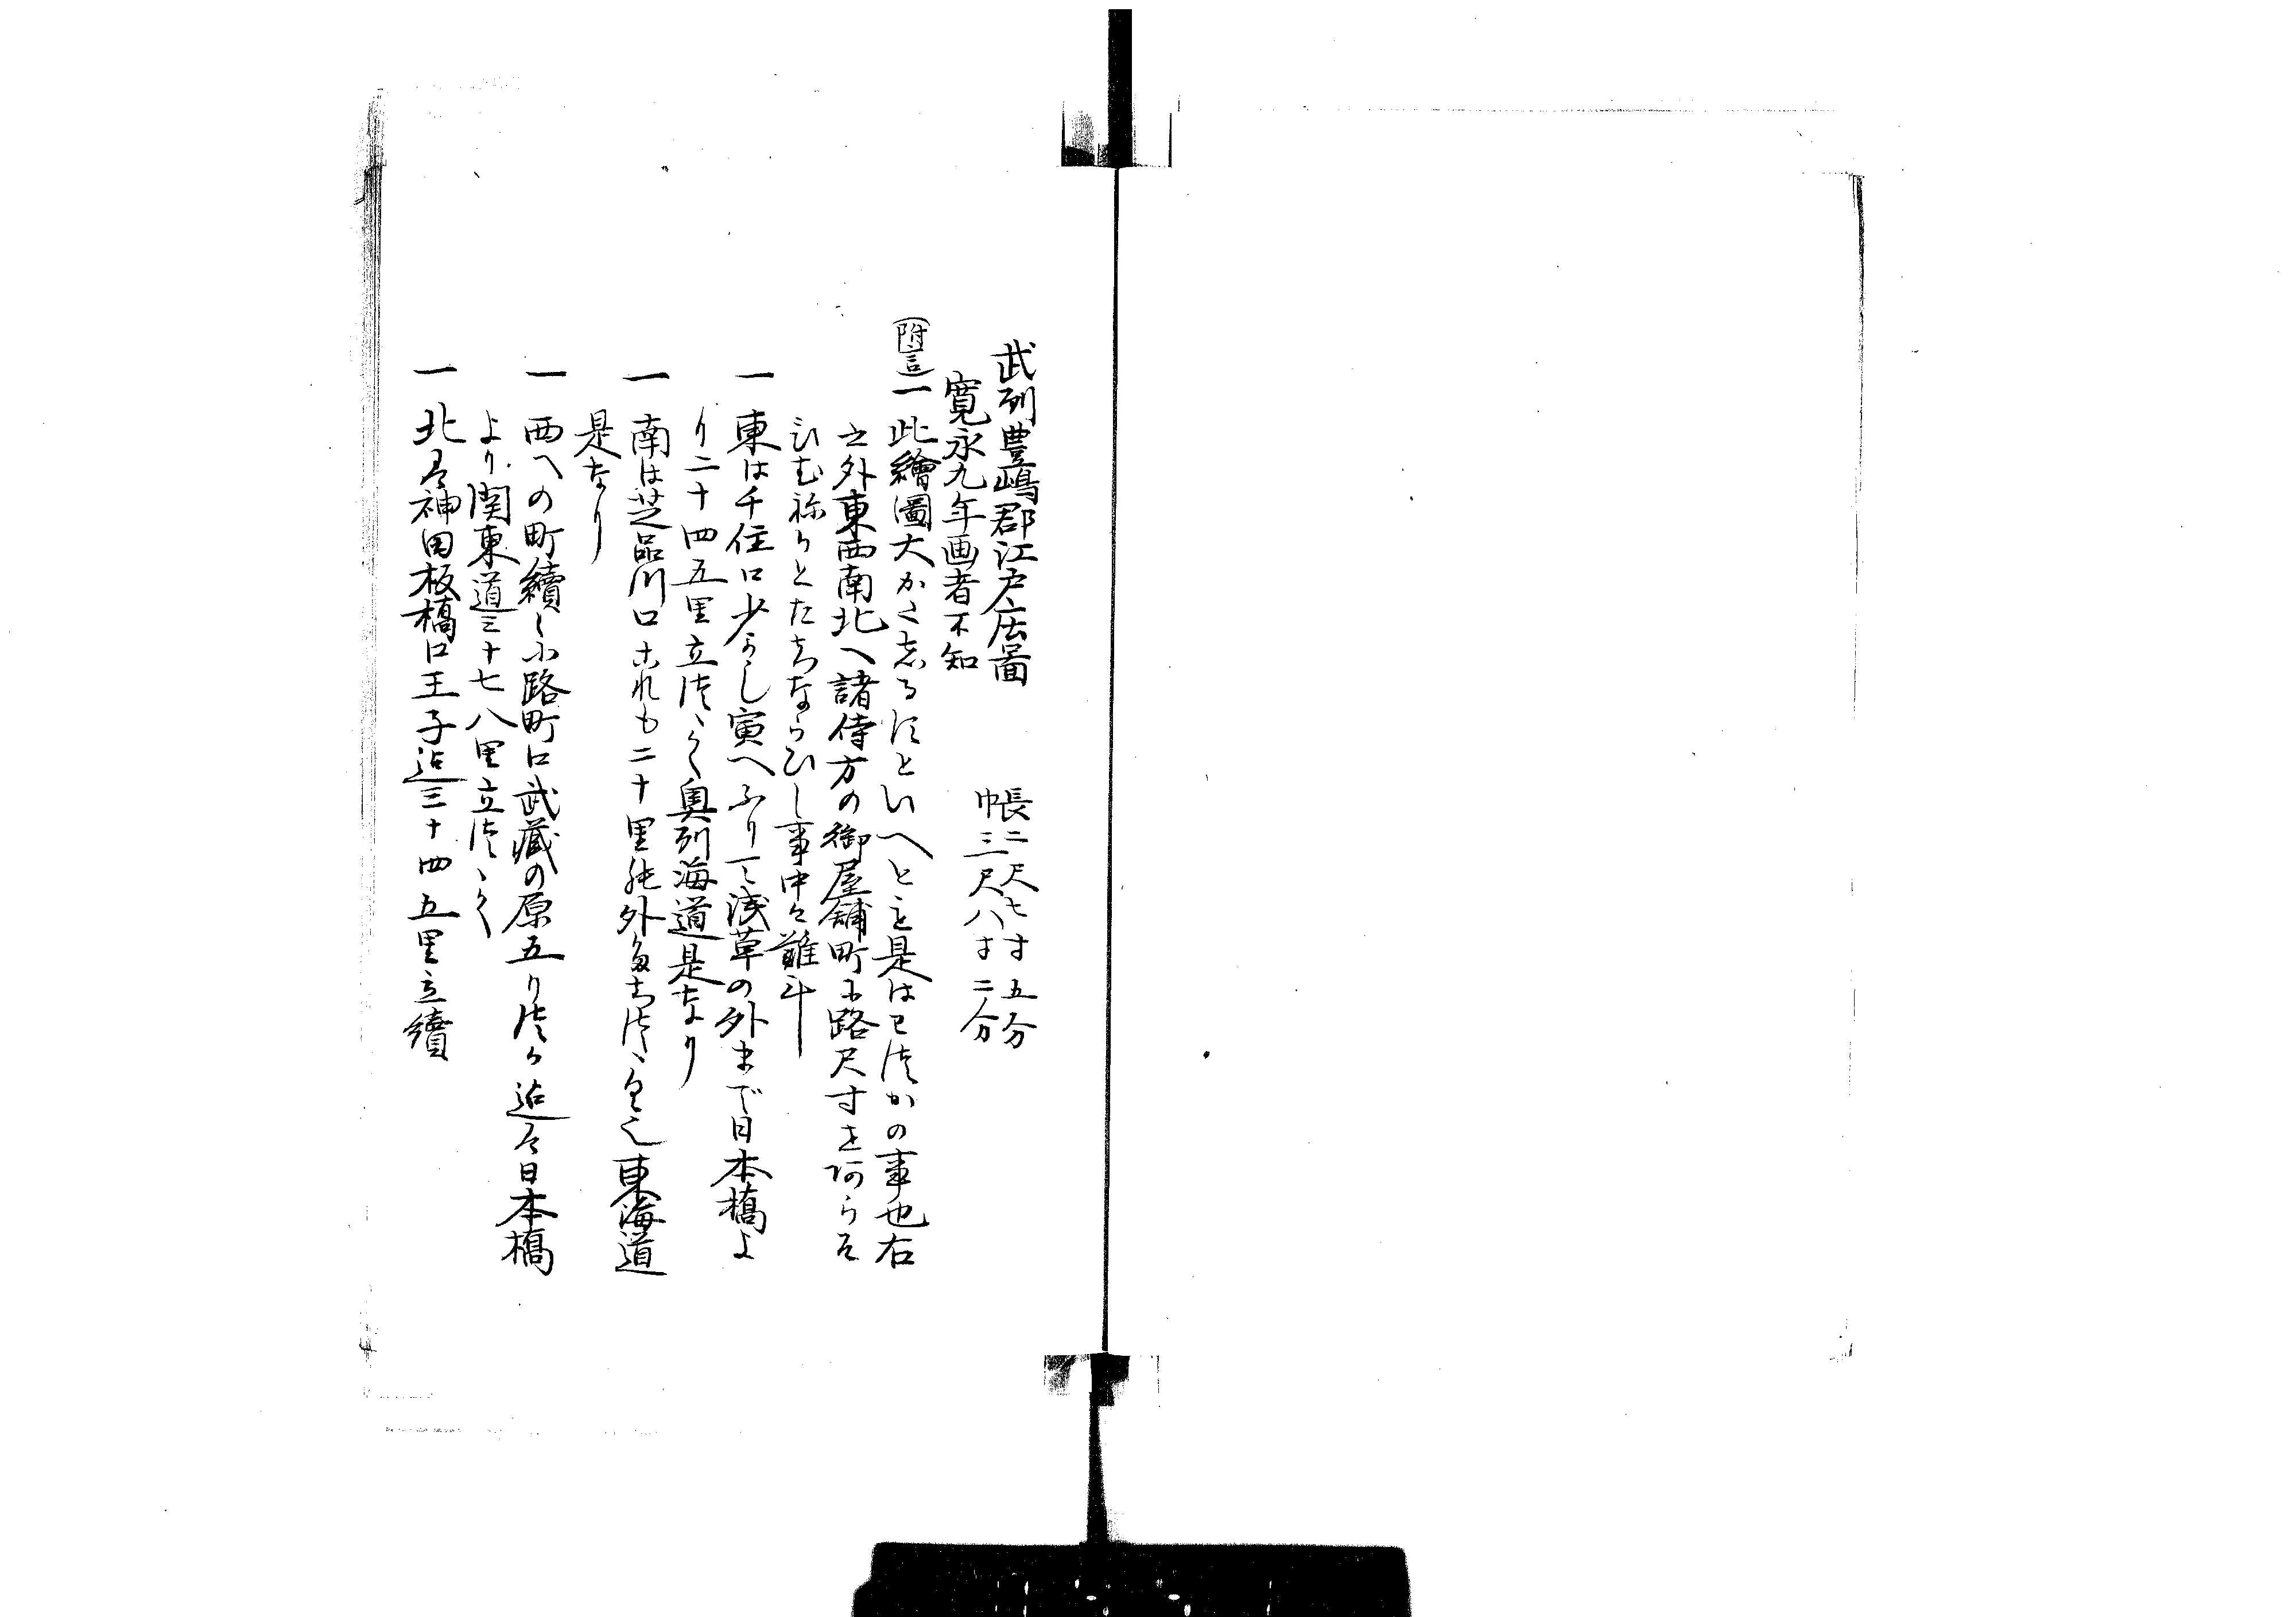 武州豊嶋郡江戸庄圖
長二尺七寸五分
巾三尺八寸二分
寛永九年画者不知
附言一此繪圖大かた志るすといへとも是はわつかの事也右
之外東西南北へ諸侍方の御屋舗町小路尺寸を阿らそ
ひむねりとたちならひし事中々難斗
一東は千住口少うし寅へふりて浅草の外まで日本橋よ
り二十四五里立つゝく奥州海道是なり
一南は芝品川口これも二十里能外多ちつゝく也東海道
是なり
一西への町續く小路町口武蔵の原五りつか迄は日本橋
より関東道三十七八里立つゝく
一北は神田板橋口王子迄三十四五里立續